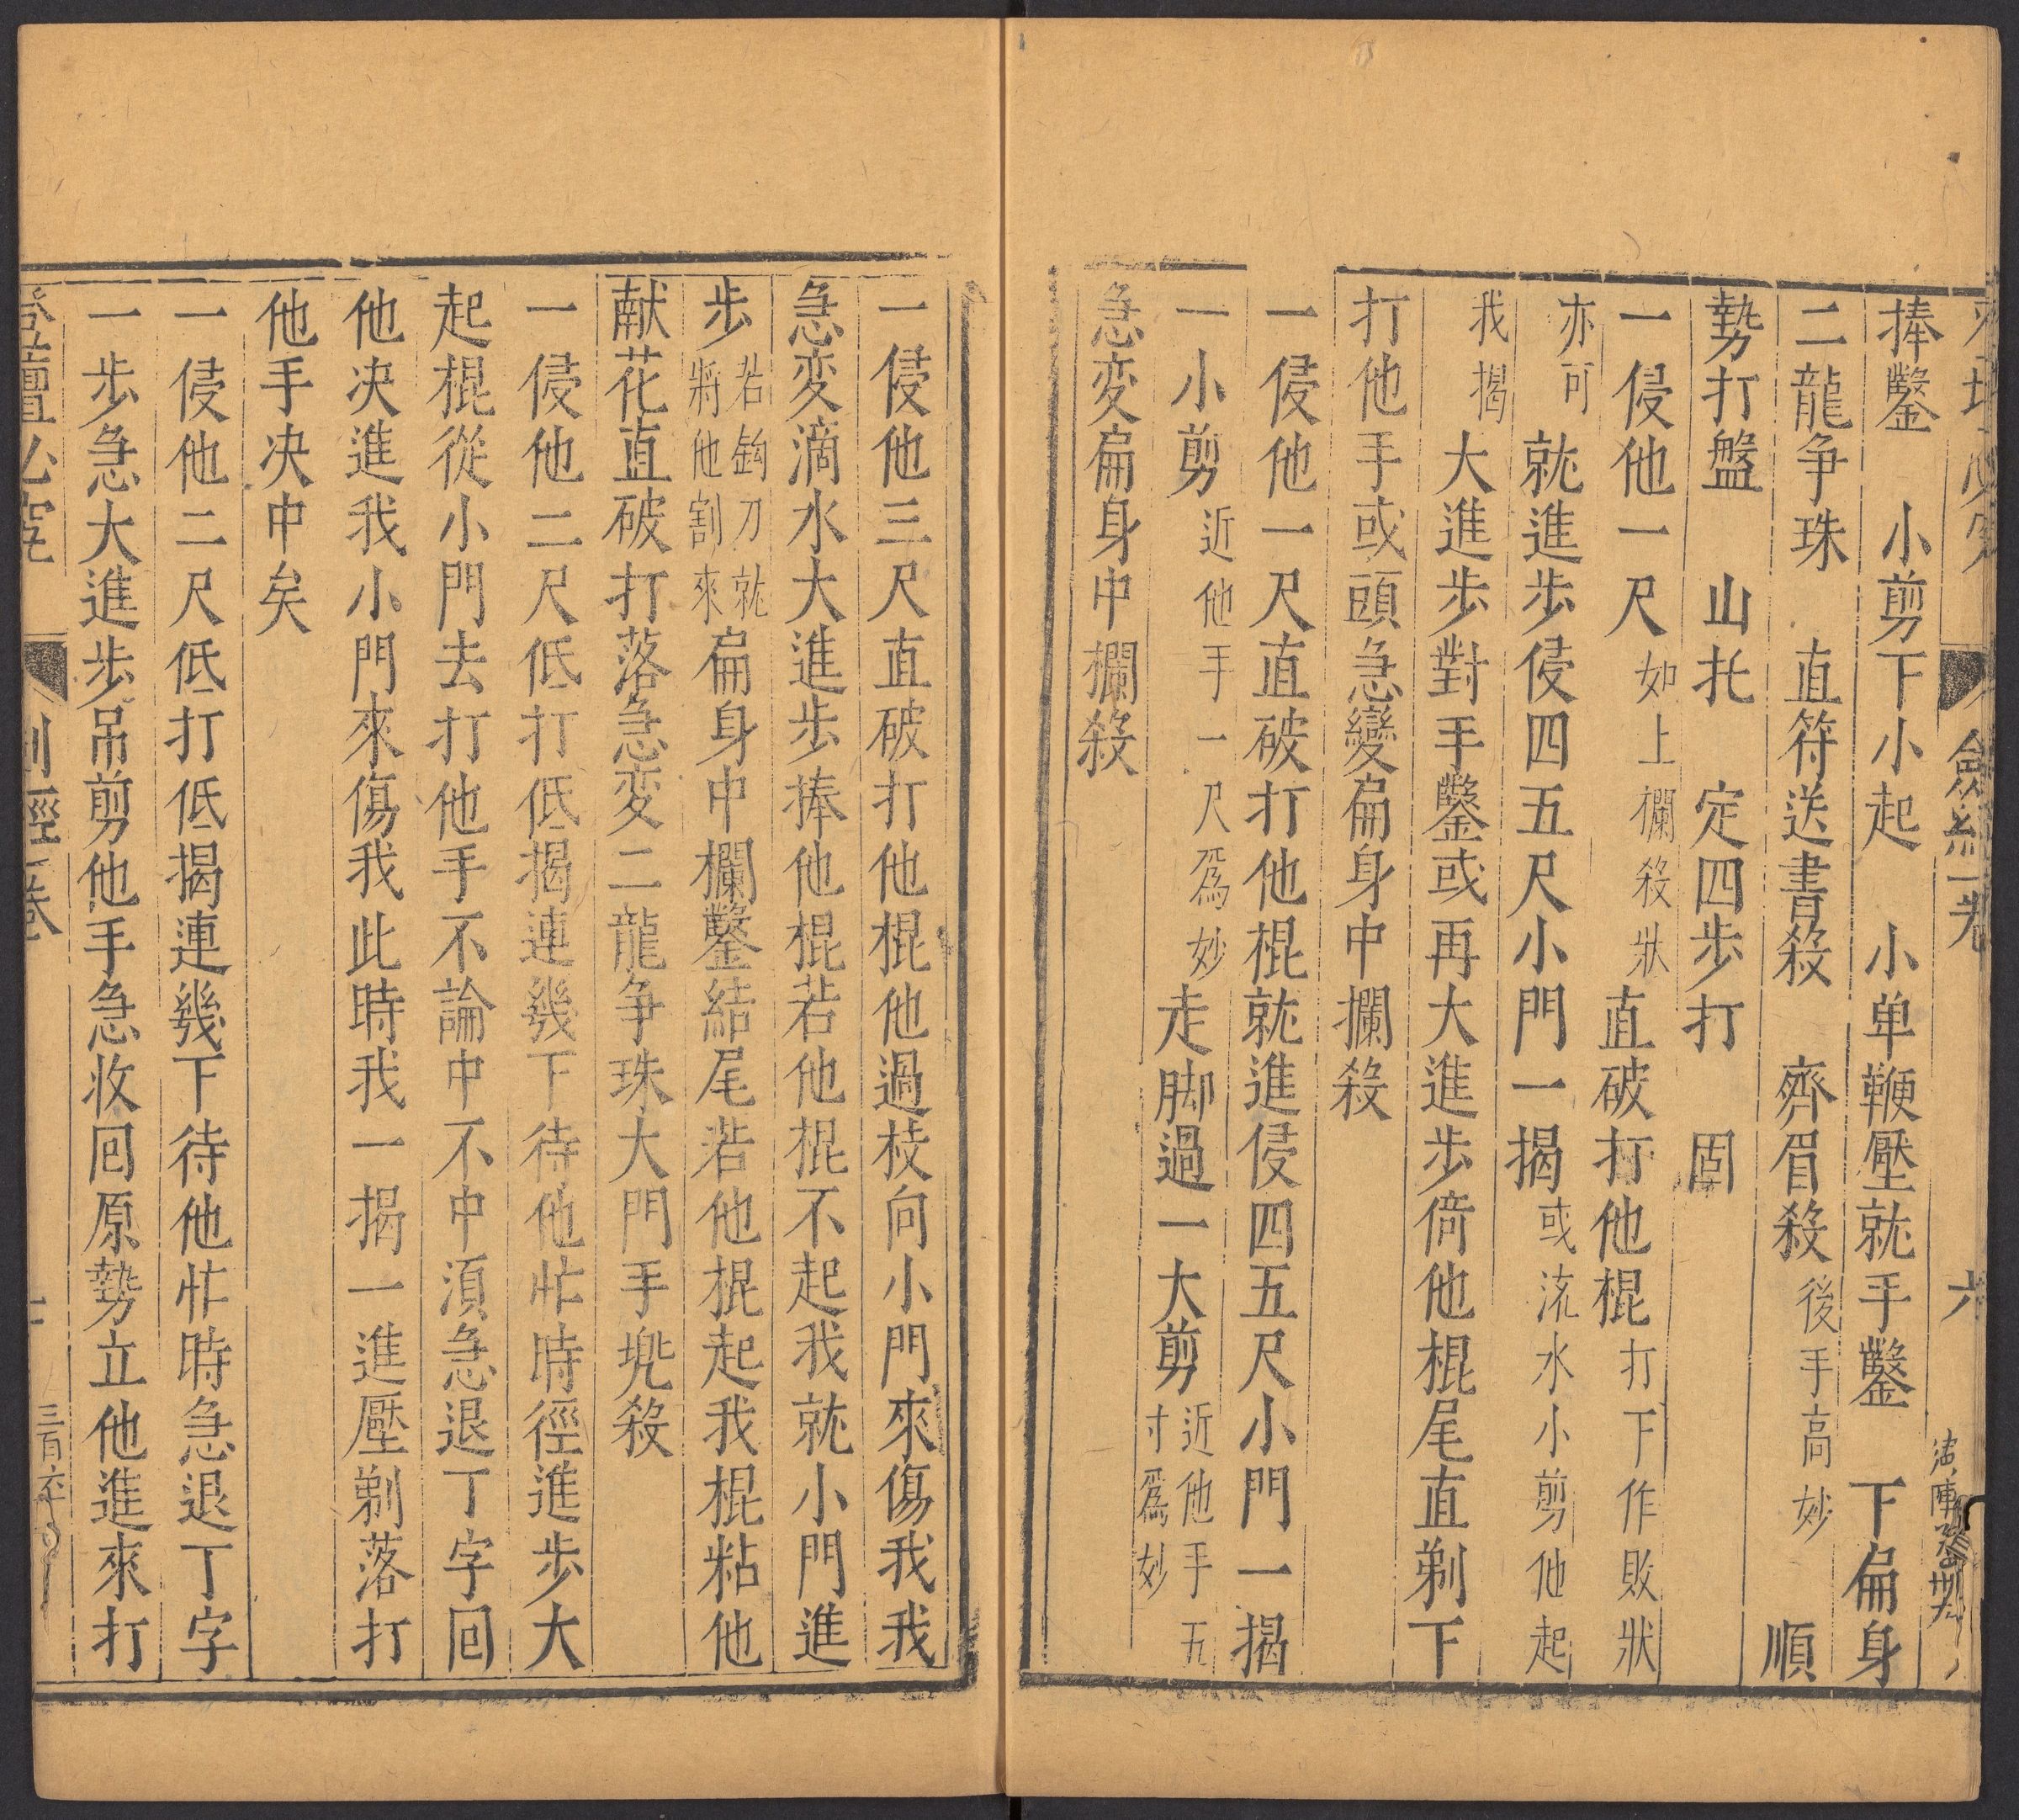 劍經一卷
六
捧鑿　小剪下小起　小单鞭壓就手鑿　下扁身
二龍争珠　直符送書殺　齊眉殺後手高妙　順
勢打盤　山托　定四步打　固
一侵他一尺如上攔殺狀直破打他棍打下作敗狀
亦可就進步侵四五尺小門一揭或流水小剪他起
我揭大進步對手鑿或再大進步倚他棍尾直剃下
打他手或頭急變扁身中攔殺
一侵他一尺直破打他棍就進侵四五尺小門一揭
一小剪近他手一尺爲妙走脚過一大剪近他手五
寸爲妙
急変扁身中攔殺
一侵他三尺直破打他棍他過枝向小門來傷我我
急変滴水大進步捧他棍若他棍不起我就小門進
步若鈎刀就
將他割來扁身中攔鑿結尾若他棍起我棍粘他
献花直破打落急変二龍争珠大門手兠殺
一侵他二尺低打低揭連幾下待他忙時徑進步大
起棍從小門去打他手不論中不中湏急退丁字回
他决進我小門來傷我此時我一揭一進壓剃落打
他手决中矣
一侵他二尺低打低揭連幾下待他忙時急退丁字
一步急大進步吊剪他手急收回原勢立他進來打
登壇必究
劍經一卷
三百六十